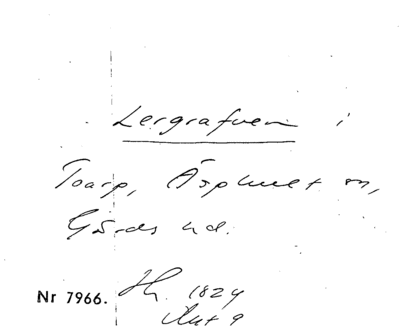 Lergrafven i
Toarp, Äsphult sn,
Gärds hd.
Nr 7966. 1824
Akt 9